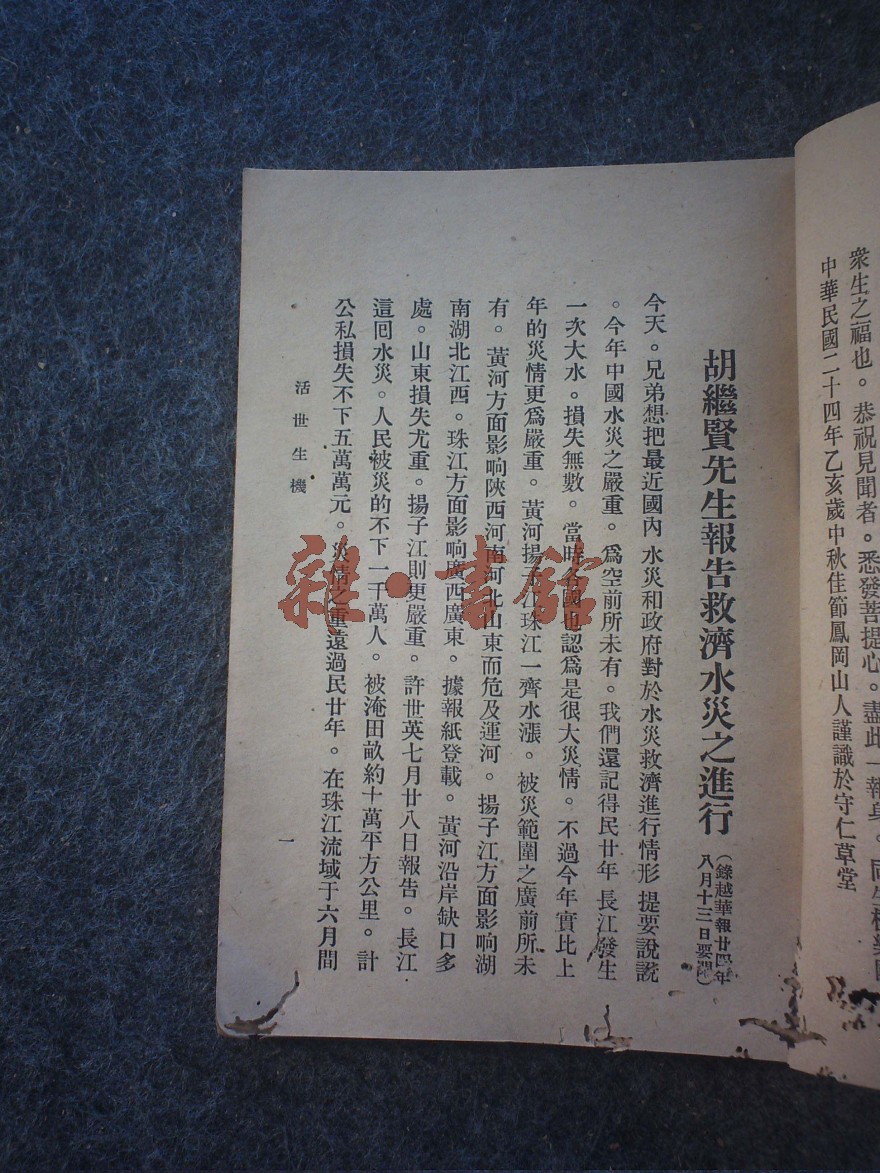 衆生之一福也。恭祝見聞者。悉發菩提心。盡此一報身。同生極
中華民國二十四年乙亥歲中秋佳節鳳岡山人謹識於守仁草堂
胡繼賢先生報告救濟水災之進行
（錄越華報廿四年
八月十三日要聞）
今天。兄弟想把最近國內 水災和政府對於水災救濟進行情形 提要說說
。今年中國水災之嚴重。爲空前所未有。我們還記得民廿年 長江發生
一次大水。損失無數。當時各國也認爲是很大災情。不過今年實比上
年的災情更爲嚴重。黃河揚子江珠江一齊水漲。被災範圍之廣前所未
有。黃河方面影响陝西河南河北山東而危及運河。揚子江方面影响湖
南湖北江西。珠江方面影响廣西廣東。據報紙登載。黃河沿岸缺口多
處。山東損失尤重。揚子江則更嚴重。許世英七月廿八日報告。長江
這回水災。人民被災的不下一千萬人。被淹田畝約十萬平方公里。計
公私損失不下五萬萬元。災情之重遠過民廿年。在珠江流域于六月間
活世生機
一
雜·書館